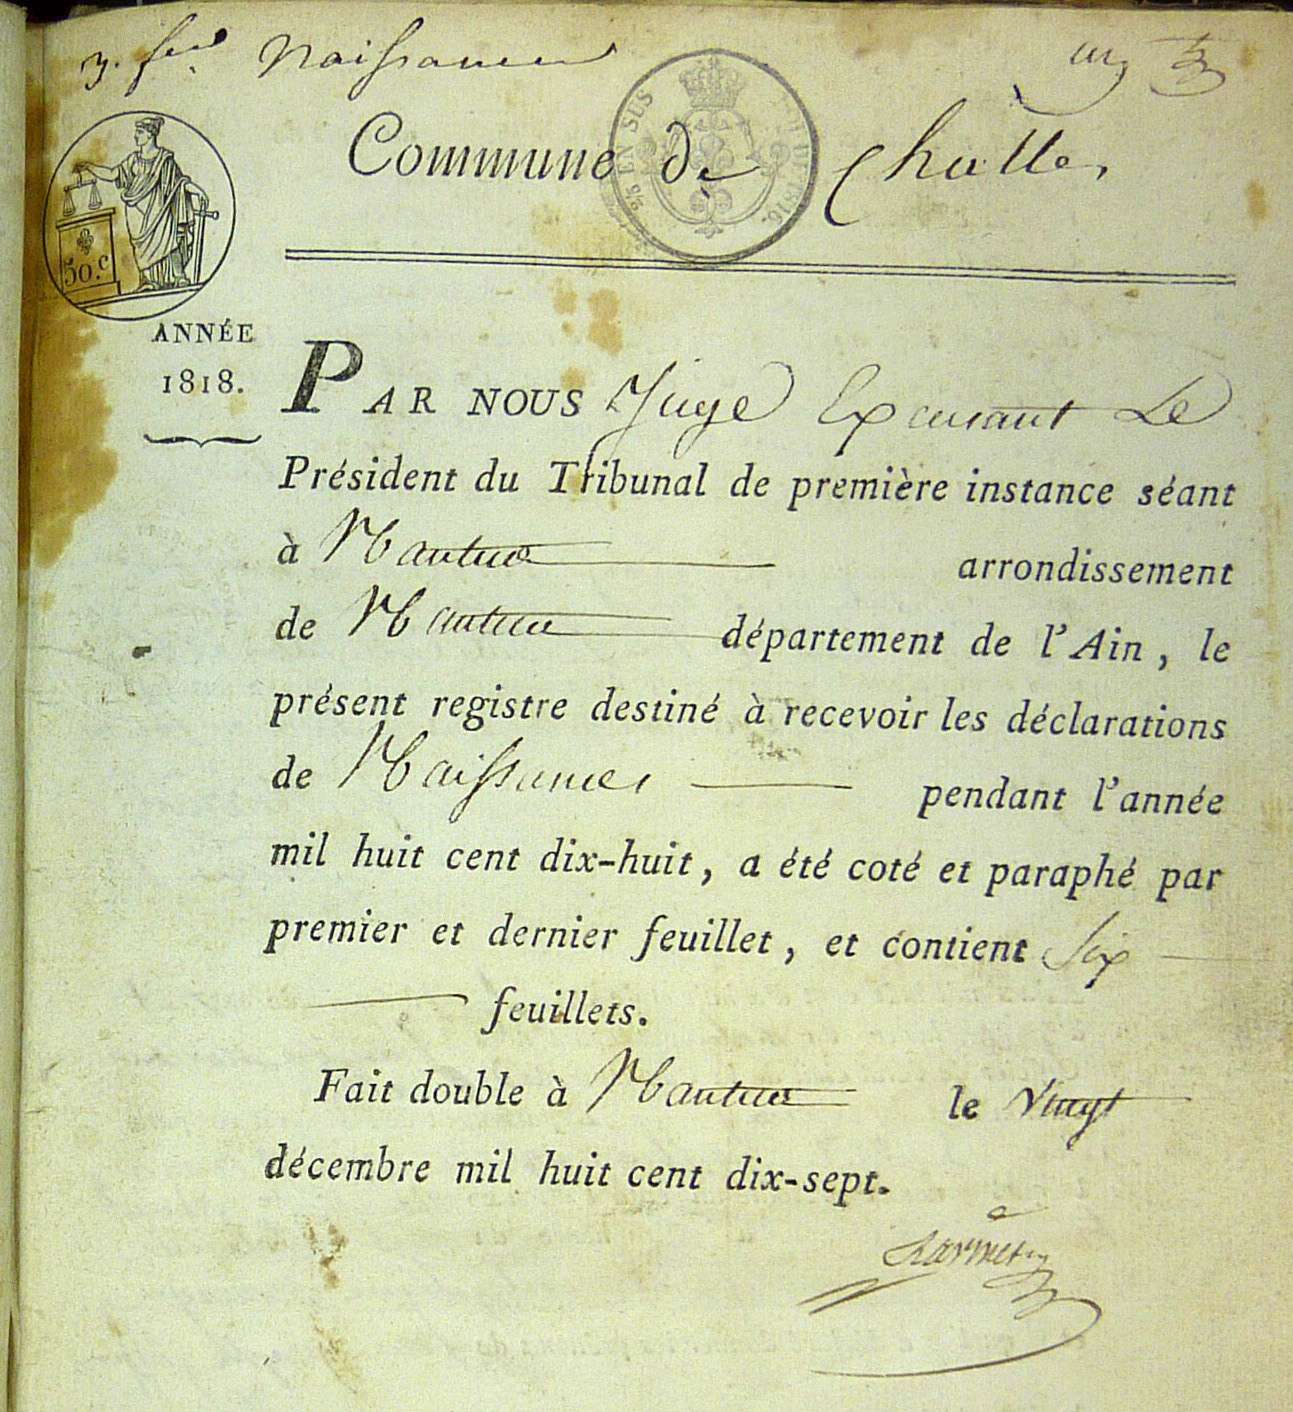 Naissances
Commune de Challes
50.c
EN SUS
DE 1816.
ANNÉE
1818.
PAR NOUS Juge Exerçant Le
Président du Tribunal de première instance séant
à Nantua arrondissement
de Nantua département de l'Ain, le
présent registre destiné à recevoir les déclarations
de Naissances pendant l'année
mil huit cent dix-huit, a été coté et paraphé par
premier et dernier feuillet, et contient Six
feuillets.
Fait double à Nantua le Vingt
décembre mil huit cent dix-sept.